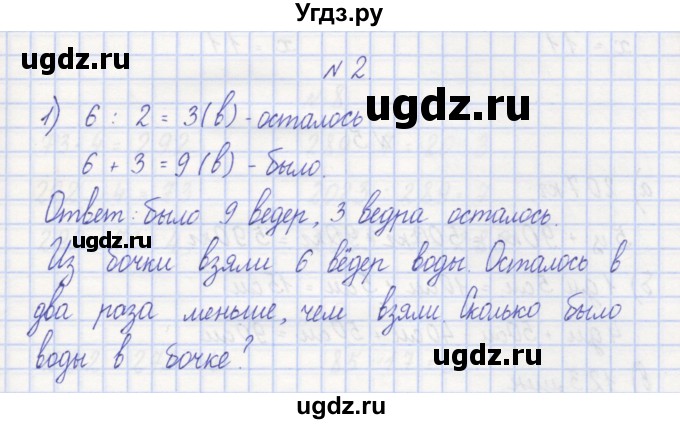 Угдз.ру
ugdz.ru
ugdz.ru
№ 2
ugdz.ru
1) 6 : 2 = 3 (в) - осталось
6 + 3 = 9 (в) - было.
Ответ: было 9 ведер, 3 ведра осталось.
ugdz.ru
ugdz.ru
Из бочки взяли 6 вёдер воды. Осталось в
два раза меньше, чем взяли. Сколько было
воды в бочке?
ugdz.ru
ugdz.ru
ugdz.ru